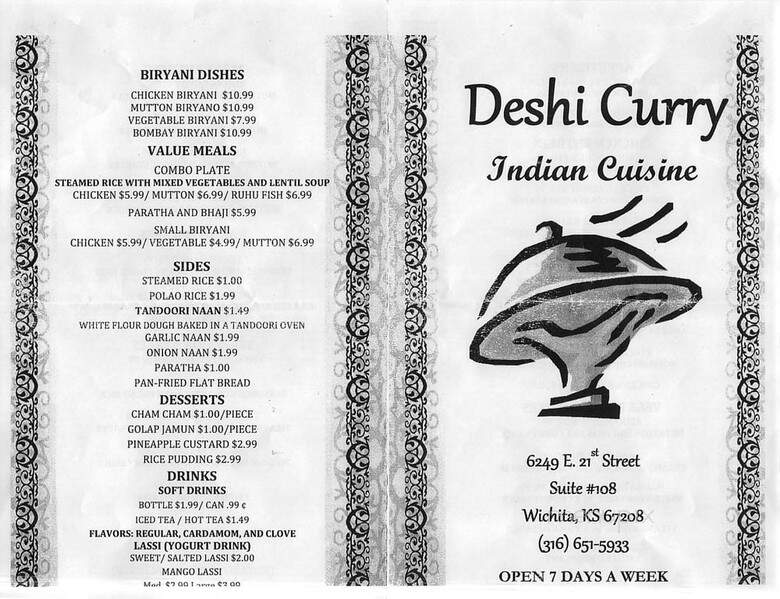 BIRYANI DISHES
CHICKEN BIRYANI $10.99
MUTTON BIRYANO $10.99
VEGETABLE BIRYANI $7.99
BOMBAY BIRYANI $10.99
VALUE MEALS
COMBO PLATE
STEAMED RICE WITH MIXED VEGETABLES AND LENTIL SOUP
CHICKEN $5.99/ MUTTON $6.99/ RUHU FISH $6.99
PARATHA AND BHAJI $5.99
SMALL BIRYANI
CHICKEN $5.99/ VEGETABLE $4.99/ MUTTON $6.99
SIDES
STEAMED RICE $1.00
POLAO RICE $1.99
TANDOORI NAAN $1.49
WHITE FLOUR DOUGH BAKED IN A TANDOORI OVEN
GARLIC NAAN $1.99
ONION NAAN $1.99
PARATHA $1.00
PAN-FRIED FLAT BREAD
DESSERTS
CHAM CHAM $1.00/PIECE
GOLAP JAMUN $1.00/PIECE
PINEAPPLE CUSTARD $2.99
RICE PUDDING $2.99
DRINKS
SOFT DRINKS
BOTTLE $1.99/ CAN .99 ¢
ICED TEA / HOT TEA $1.49
FLAVORS: REGULAR, CARDAMOM, AND CLOVE
LASSI (YOGURT DRINK)
SWEET/ SALTED LASSI $2.00
MANGO LASSI
Med. $2.99 Large $3.99
Deshi Curry
Indian Cuisine
6249 E. 21st Street
Suite #108
Wichita, KS 67208
(316) 651-5933
OPEN 7 DAYS A WEEK